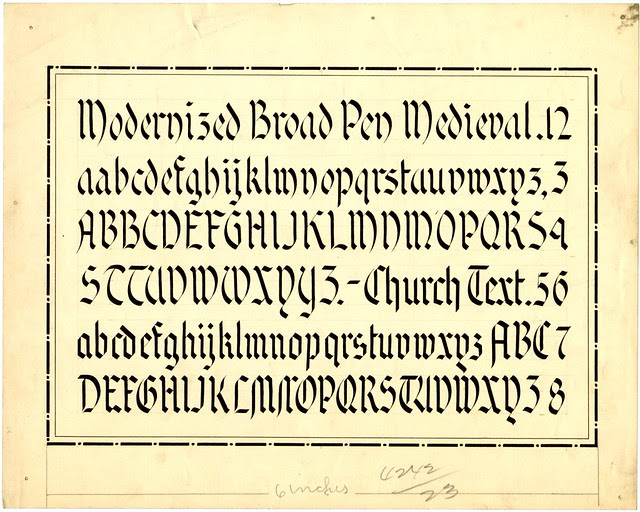 Modernized Broad Pen Medieval.12
aabcdefghijklmnopqrstuuvwxyz,3
ABBCDEFGHIJKLMNMOPQRS4
STTUVWWXYYZ.-Church Text.56
abcdefghijklmnopqrstuvwxyz ABC7
DEFGHIJKLMNOPQRSTUVWXYZ8
6 inches 4242/23